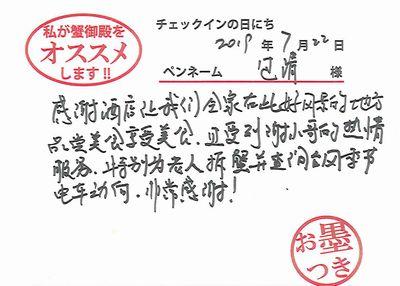 私が蟹御殿を
オススメ
します!!
チェックインの日にち
2019 年 7 月 22 日
ペンネーム 包清 様
感谢酒店让我们全家在此好风景的地方
品尝美食享受美食.且受到谢小哥的热情
服务.特别为老人拆蟹并查询台风季节
电车动向.非常感谢!
お墨
つき